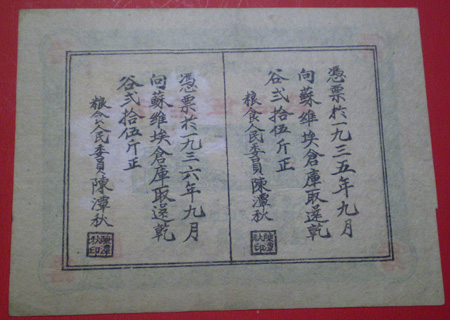 憑票於一九三五年九月
向蘇維埃倉庫取還乾
谷弍拾伍斤正
粮食人民委員陳潭秋
陳潭秋印
憑票於一九三六年九月
向蘇維埃倉庫取還乾
谷弍拾伍斤正
粮食人民委員陳潭秋
陳潭秋印